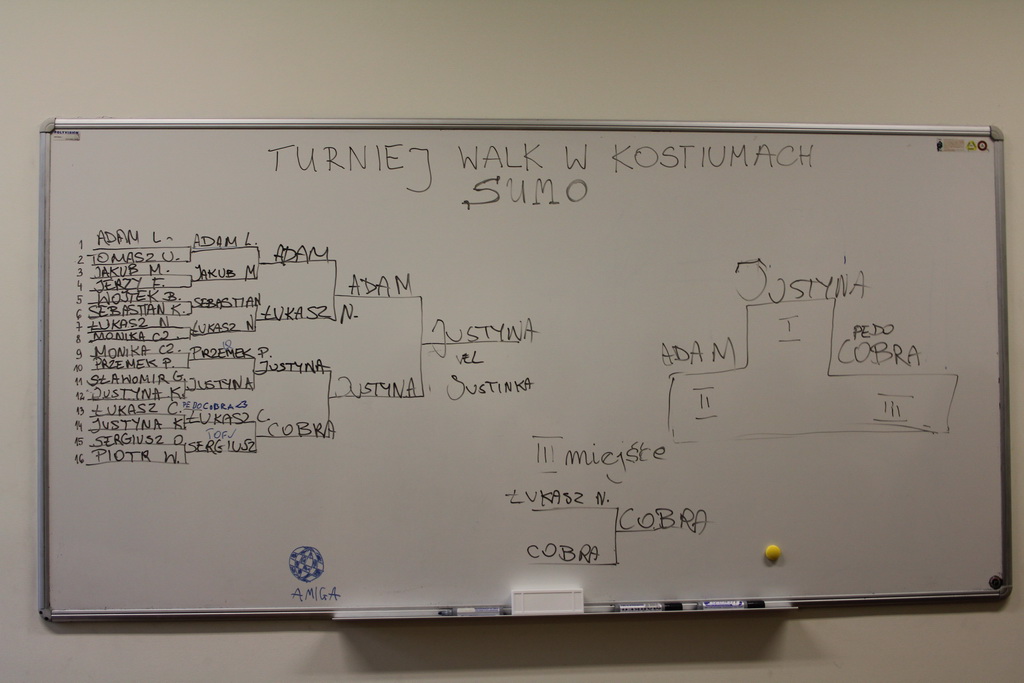 TURNIEJ WALK W KOSTIUMACH
SUMO
1 ADAM L.
2 TOMASZ U.
3 JAKUB M.
4 JERZY E.
5 WOJTEK B.
6 SEBASTIAN K.
7 ŁUKASZ N.
8 MONIKA CZ.
9 MONIKA CZ.
10 PRZEMEK P.
11 SŁAWOMIR G.
12 JUSTYNA K.
13 ŁUKASZ C.
14 JUSTYNA K
15 SERGIUSZ O.
16 PIOTR W.
ADAM L.
JAKUB M
SEBASTIAN
ŁUKASZ N
PRZEMEK P.
JUSTYNA
PEDOCOBRA <3
ŁUKASZ C.
TOFU
SERGIUSZ
ADAM
ŁUKASZ N.
JUSTYNA
COBRA
ADAM
JUSTYNA
JUSTYNA
VEL
JUSTINKA
JUSTYNA
I
ADAM
II
PEDO
COBRA
III
III miejsce
ŁUKASZ N.
COBRA
COBRA
AMIGA